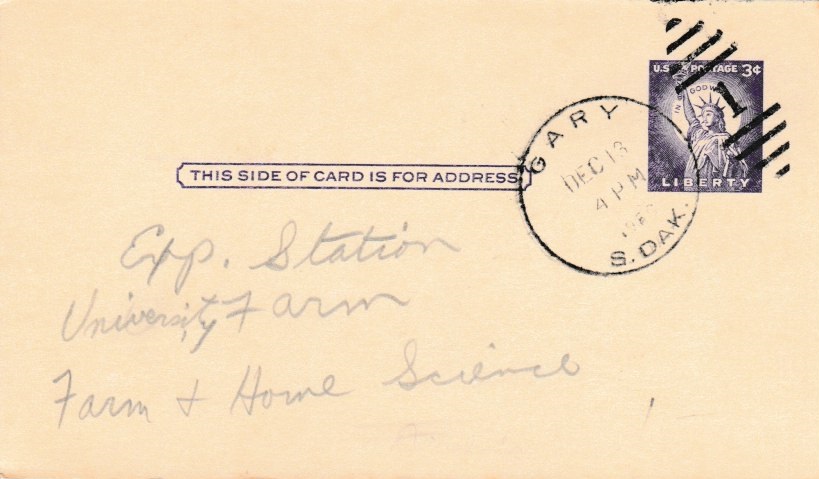 U.S. POSTAGE 3¢
IN GOD WE
LIBERTY
GARY
DEC 13
4 PM
S. DAK.
1
THIS SIDE OF CARD IS FOR ADDRESS
Exp. Station
University Farm
Farm & Home Science